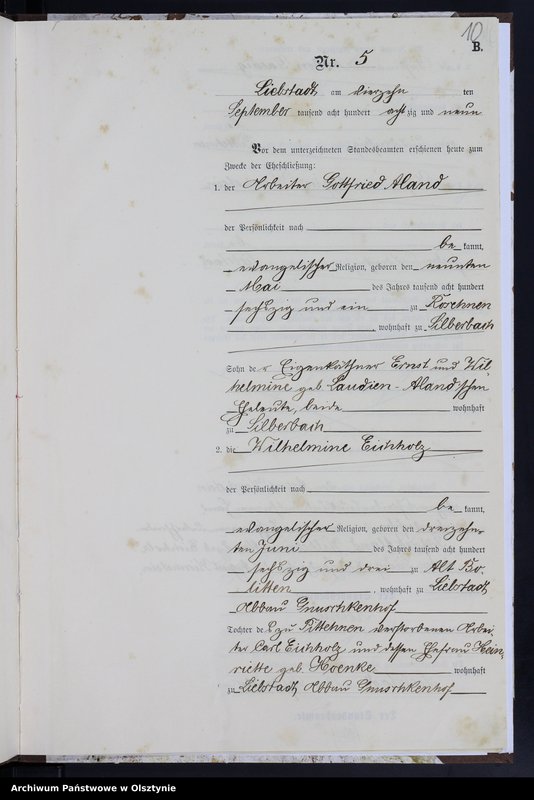 10
B.
Nr. 5
Liebstadt, am vierzehn ten
September tausend acht hundert acht zig und neun
Vor dem unterzeichneten Standesbeamten erschienen heute zum
Zwecke der Eheschließung:
1. der Arbeiter Gottfried Aland
der Persönlichkeit nach
be kannt,
evangelischer Religion, geboren den neunten
Mai des Jahres tausend acht hundert
sechszig und ein zu Koschnen
, wohnhaft zu Silberbach
Sohn der Eigenkäthner Ernst und Wil-
helmine geb. Laudien - Aland'schen
Eheleute, beide wohnhaft
zu Silberbach
2. die Wilhelmine Eichholz
der Persönlichkeit nach
be kannt,
evangelischer Religion, geboren den dreizehn-
ten Juni des Jahres tausend acht hundert
sechszig und drei zu Alt Bo-
litten, wohnhaft zu Liebstadt
Abbau Gnuschkenhof
Tochter des zu Pittehnen verstorbenen Arbei-
ter Carl Eichholz und dessen Ehefrau Hein-
riette geb. Hoenke wohnhaft
zu Liebstadt, Abbau Gnuschkenhof
Archiwum Państwowe w Olsztynie